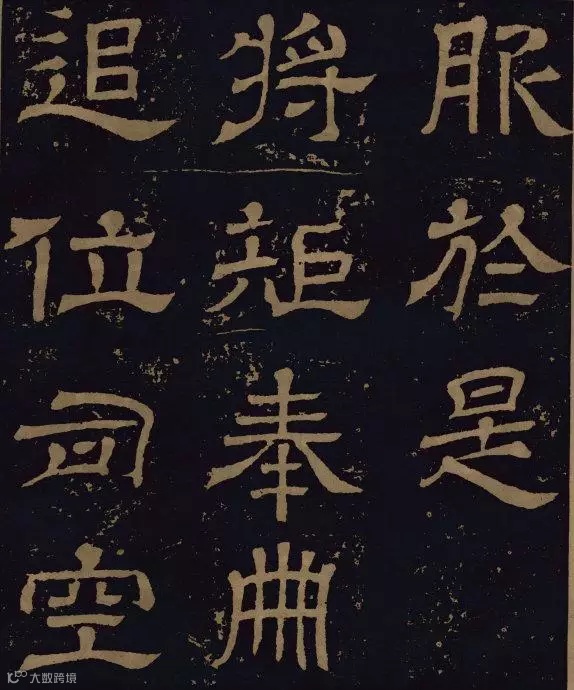 服於是
將矩奉典
追位司空
大数跨境